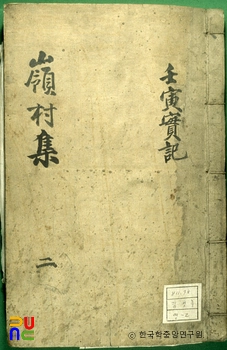 壬寅實記
嶺村集
二
© 한국학중앙연구원